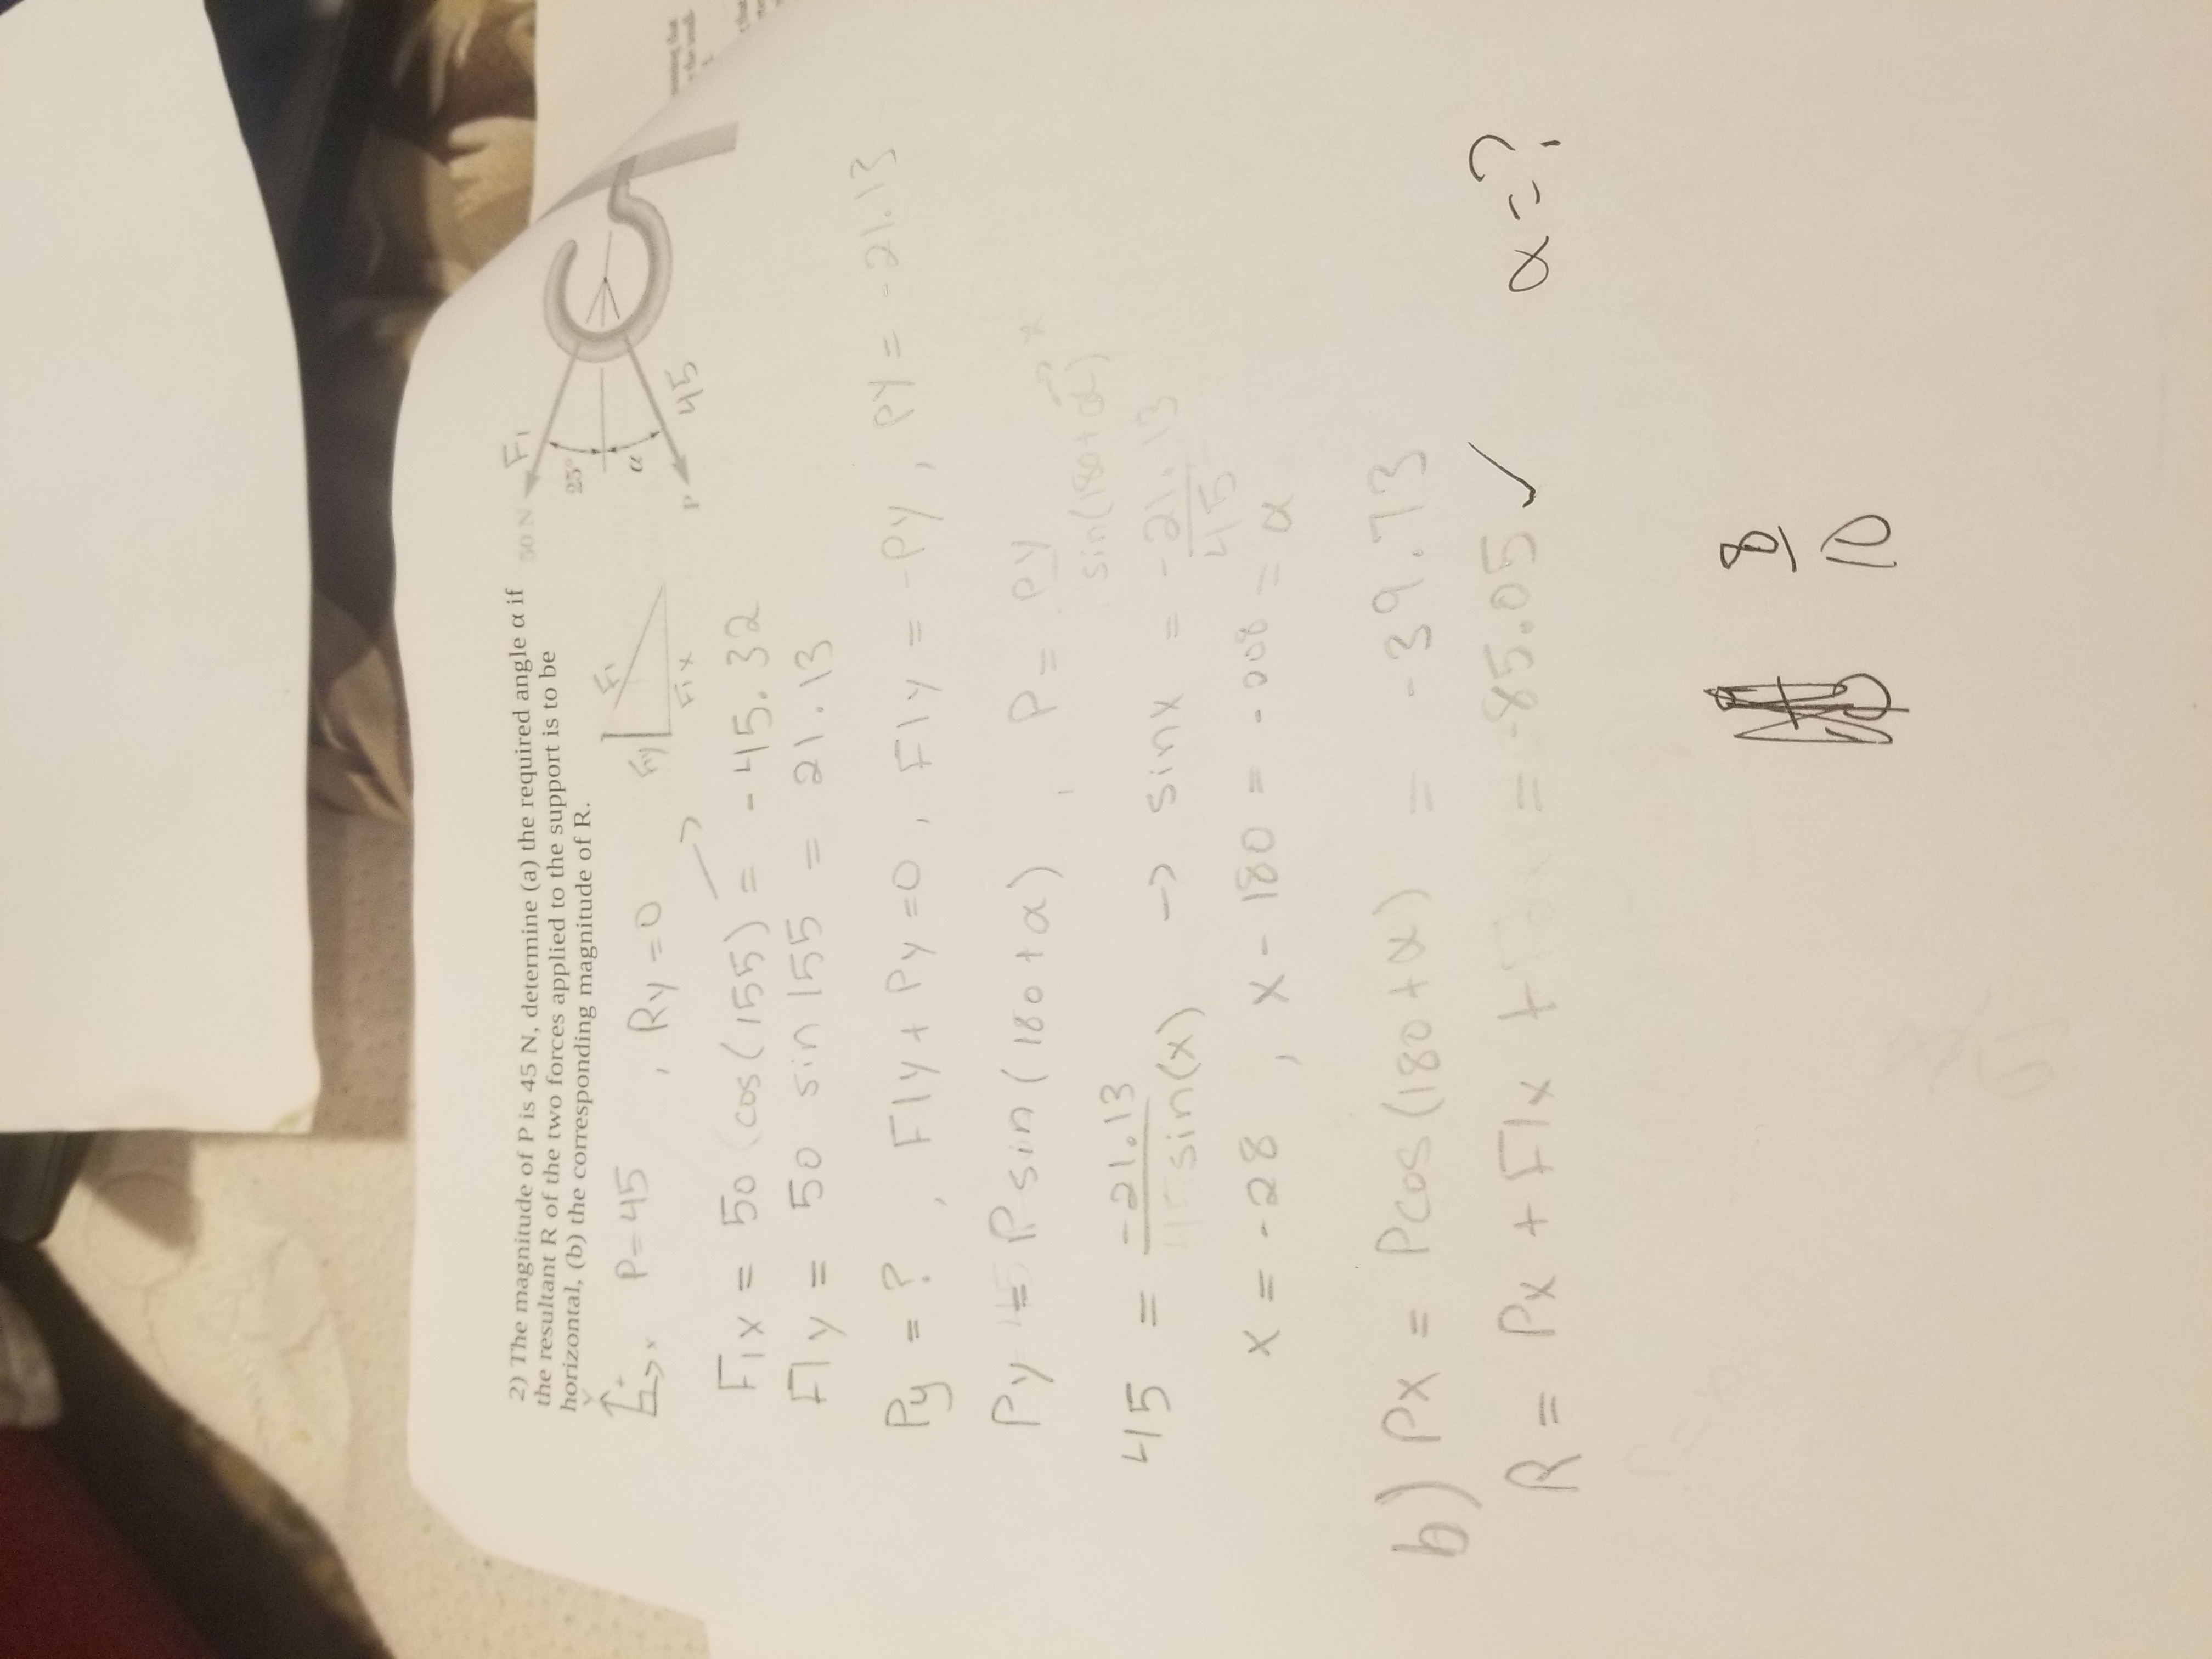 2) The magnitude of P is 45 N, determine (a) the required angle α if
the resultant R of the two forces applied to the support is to be
horizontal, (b) the corresponding magnitude of R.
50 N
F1
25°
α
P
45
P=45 , Ry=0
F1
F1y
F1x
F1x = 50 (cos(155) = -45.32
F1y = 50 sin 155 = 21.13
Py = ? , F1y + Py =0 , F1y = -Py , Py = -21.13
Py = P sin (180+α) , P = Py / sin(180+α) x
45 = -21.13 / sin(x) → sinx = -21.13 / 45
x = -28 , x - 180 = -008 = α
b) Px = Pcos(180+α) = -39.73
R = Px + F1x = -85.05 ✓ α=?
8/10